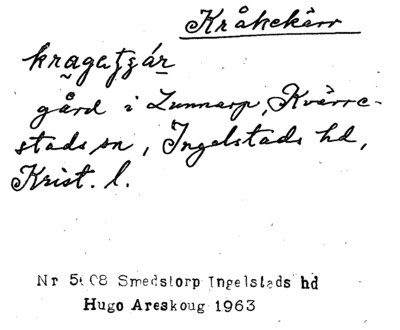 Kråkekärr
kragatʒár
gård i Lunnarp, Kvärre-
stads sn, Ingelstads hd,
Krist. l.
Nr 5608 Smedstorp Ingelstads hd
Hugo Areskoug 1963